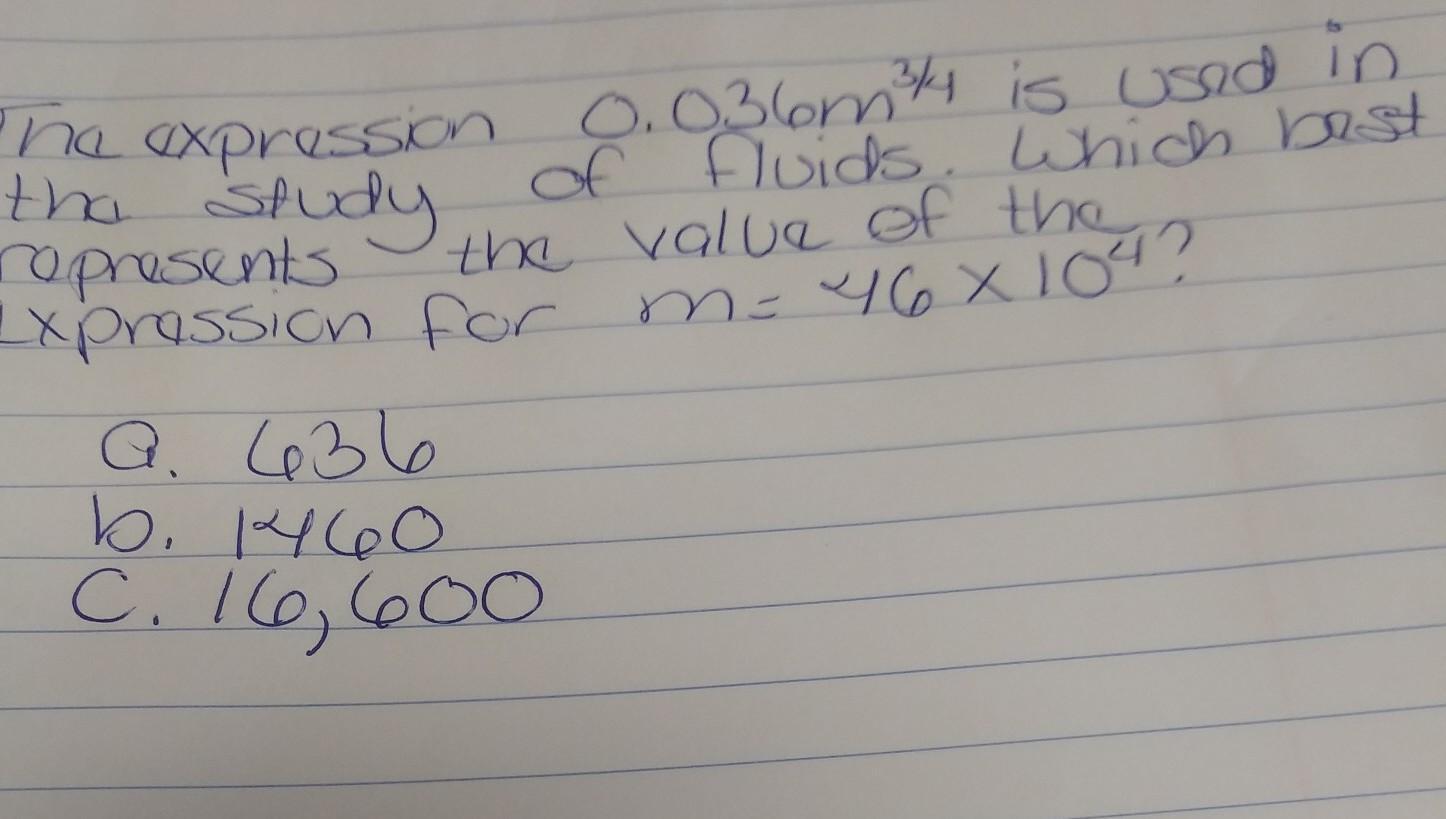 The expression 0.036m^3/4 is used in
the study of fluids. Which best
represents the value of the
Expression for m = 46 x 10^4?
a. 636
b. 1460
C. 16,600